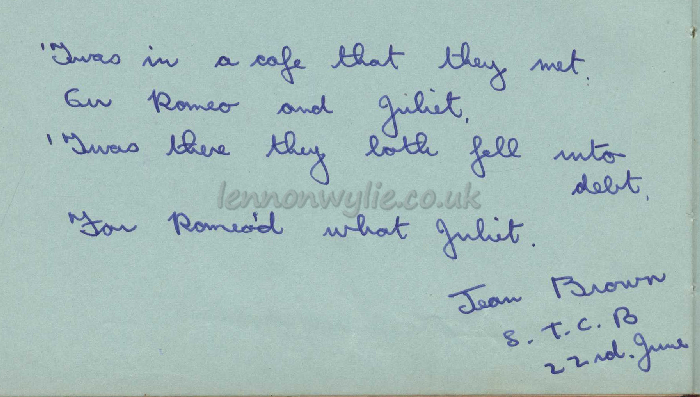 'Twas in a cafe that they met.
Our Romeo and Juliet,
'Twas there they both fell into
debt,
lennonwylie.co.uk
For Romeo'd what Juliet.
Jean Brown
S. T. C. B
22nd. June